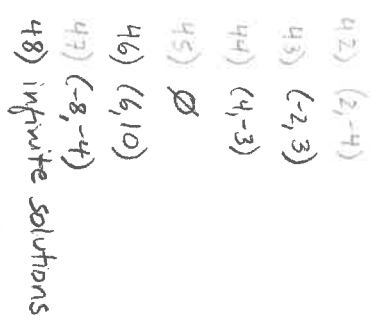 42) (2,-4)
43) (-2,3)
44) (4,-3)
45) Ø
46) (6,10)
47) (-8,-4)
48) infinite solutions